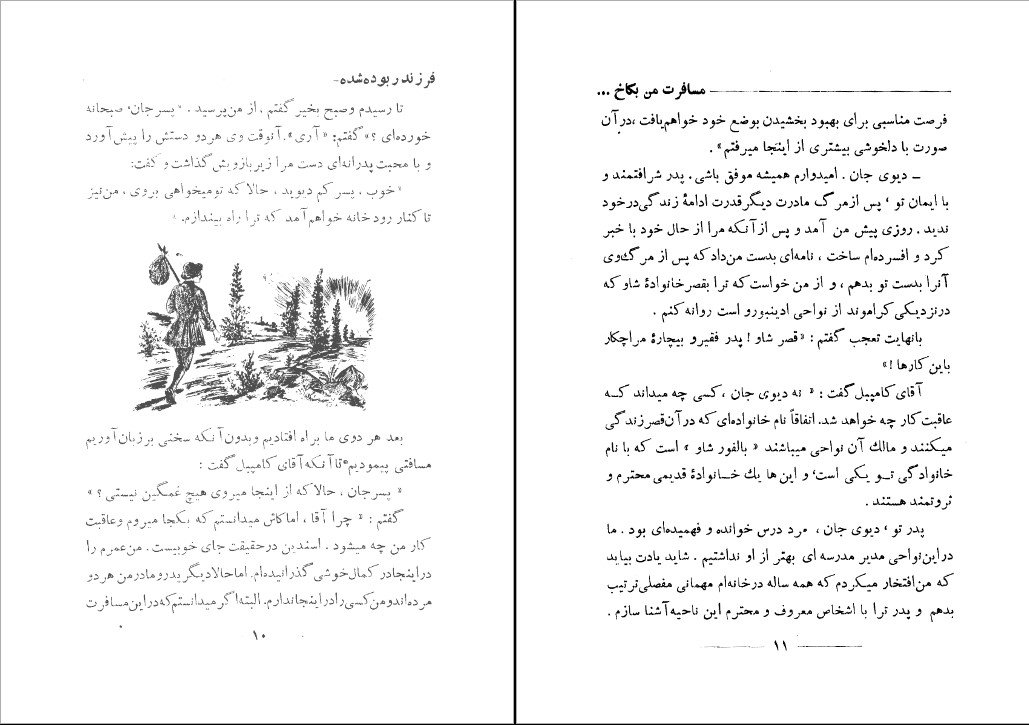 فرزند ربوده شده -
تا رسیدم وصبح بخیر گفتم ، از من پرسید . « پسرجان، صبحانه
خورده‌ای ؟» گفتم: « آری ». آنوقت وی هردو دستش را پیش آورد
و با محبت پدرانه‌ای دست مرا زیر بازویش گذاشت و گفت:
«خوب ، پسرکم دیوید ، حالا که تومیخواهی بروی ، من نیز
تا کنار رودخانه خواهم آمد که ترا راه بیندازم. »
بعد هر دوی ما براه افتادیم وبدون آنکه سخنی برزبان آوریم
مسافتی پیمودیم تا آنکه آقای کامپبل گفت :
« پسرجان ، حالا که از اینجا میروی هیچ غمگین نیستی ؟ »
گفتم : « چرا آقا ، اما کاش میدانستم که بکجا میروم وعاقبت
کار من چه میشود . اسندین درحقیقت جای خوبیست . من عمرم را
دراینجا در کمال خوشی گذرانیده‌ام. اما حالا دیگر پدرومادر من هردو
مرده‌اند ومن کسی را دراینجا ندارم. البته اگر میدانستم که دراین مسافرت
۱۰
مسافرت من بکاخ ...
فرصت مناسبی برای بهبود بخشیدن بوضع خود خواهم یافت ، درآن
صورت با دلخوشی بیشتری از اینجا میرفتم» .
ــ دیوی جان . امیدوارم همیشه موفق باشی . پدر شرافتمند و
با ایمان تو ، پس ازمرگ مادرت دیگر قدرت ادامهٔ زندگی درخود
ندید . روزی پیش من آمد و پس از آنکه مرا از حال خود با خبر
کرد و افسرده‌ام ساخت ، نامه‌ای بدست من داد که پس از مرگ وی
آنرا بدست تو بدهم ، و از من خواست که ترا بقصر خانوادهٔ شاو که
درنزدیکی کراموند از نواحی ادینبورو است روانه کنم .
بانهایت تعجب گفتم : «قصر شاو ! پدر فقیرو بیچارهٔ مراچکار
باین کارها !»
آقای کامپبل گفت : « نه دیوی جان ، کسی چه میداند کــه
عاقبت کار چه خواهد شد. اتفاقاً نام خانواده‌ای که درآن قصر زندگی
میکنند و مالك آن نواحی میباشند « بالفور شاو » است که با نام
خانوادگی تــو یکی است، و این ها یك خــانوادهٔ قدیمی محترم و
ثروتمند هستند .
پدر تو ، دیوی جان ، مرد درس خوانده و فهمیده‌ای بود . ما
دراین نواحی مدیر مدرسه ای بهتر از او نداشتیم . شاید یادت بیاید
که من افتخار میکردم که همه ساله درخانه‌ام مهمانی مفصلی ترتیب
بدهم و پدر ترا با اشخاص معروف و محترم این ناحیه آشنا سازم .
۱۱